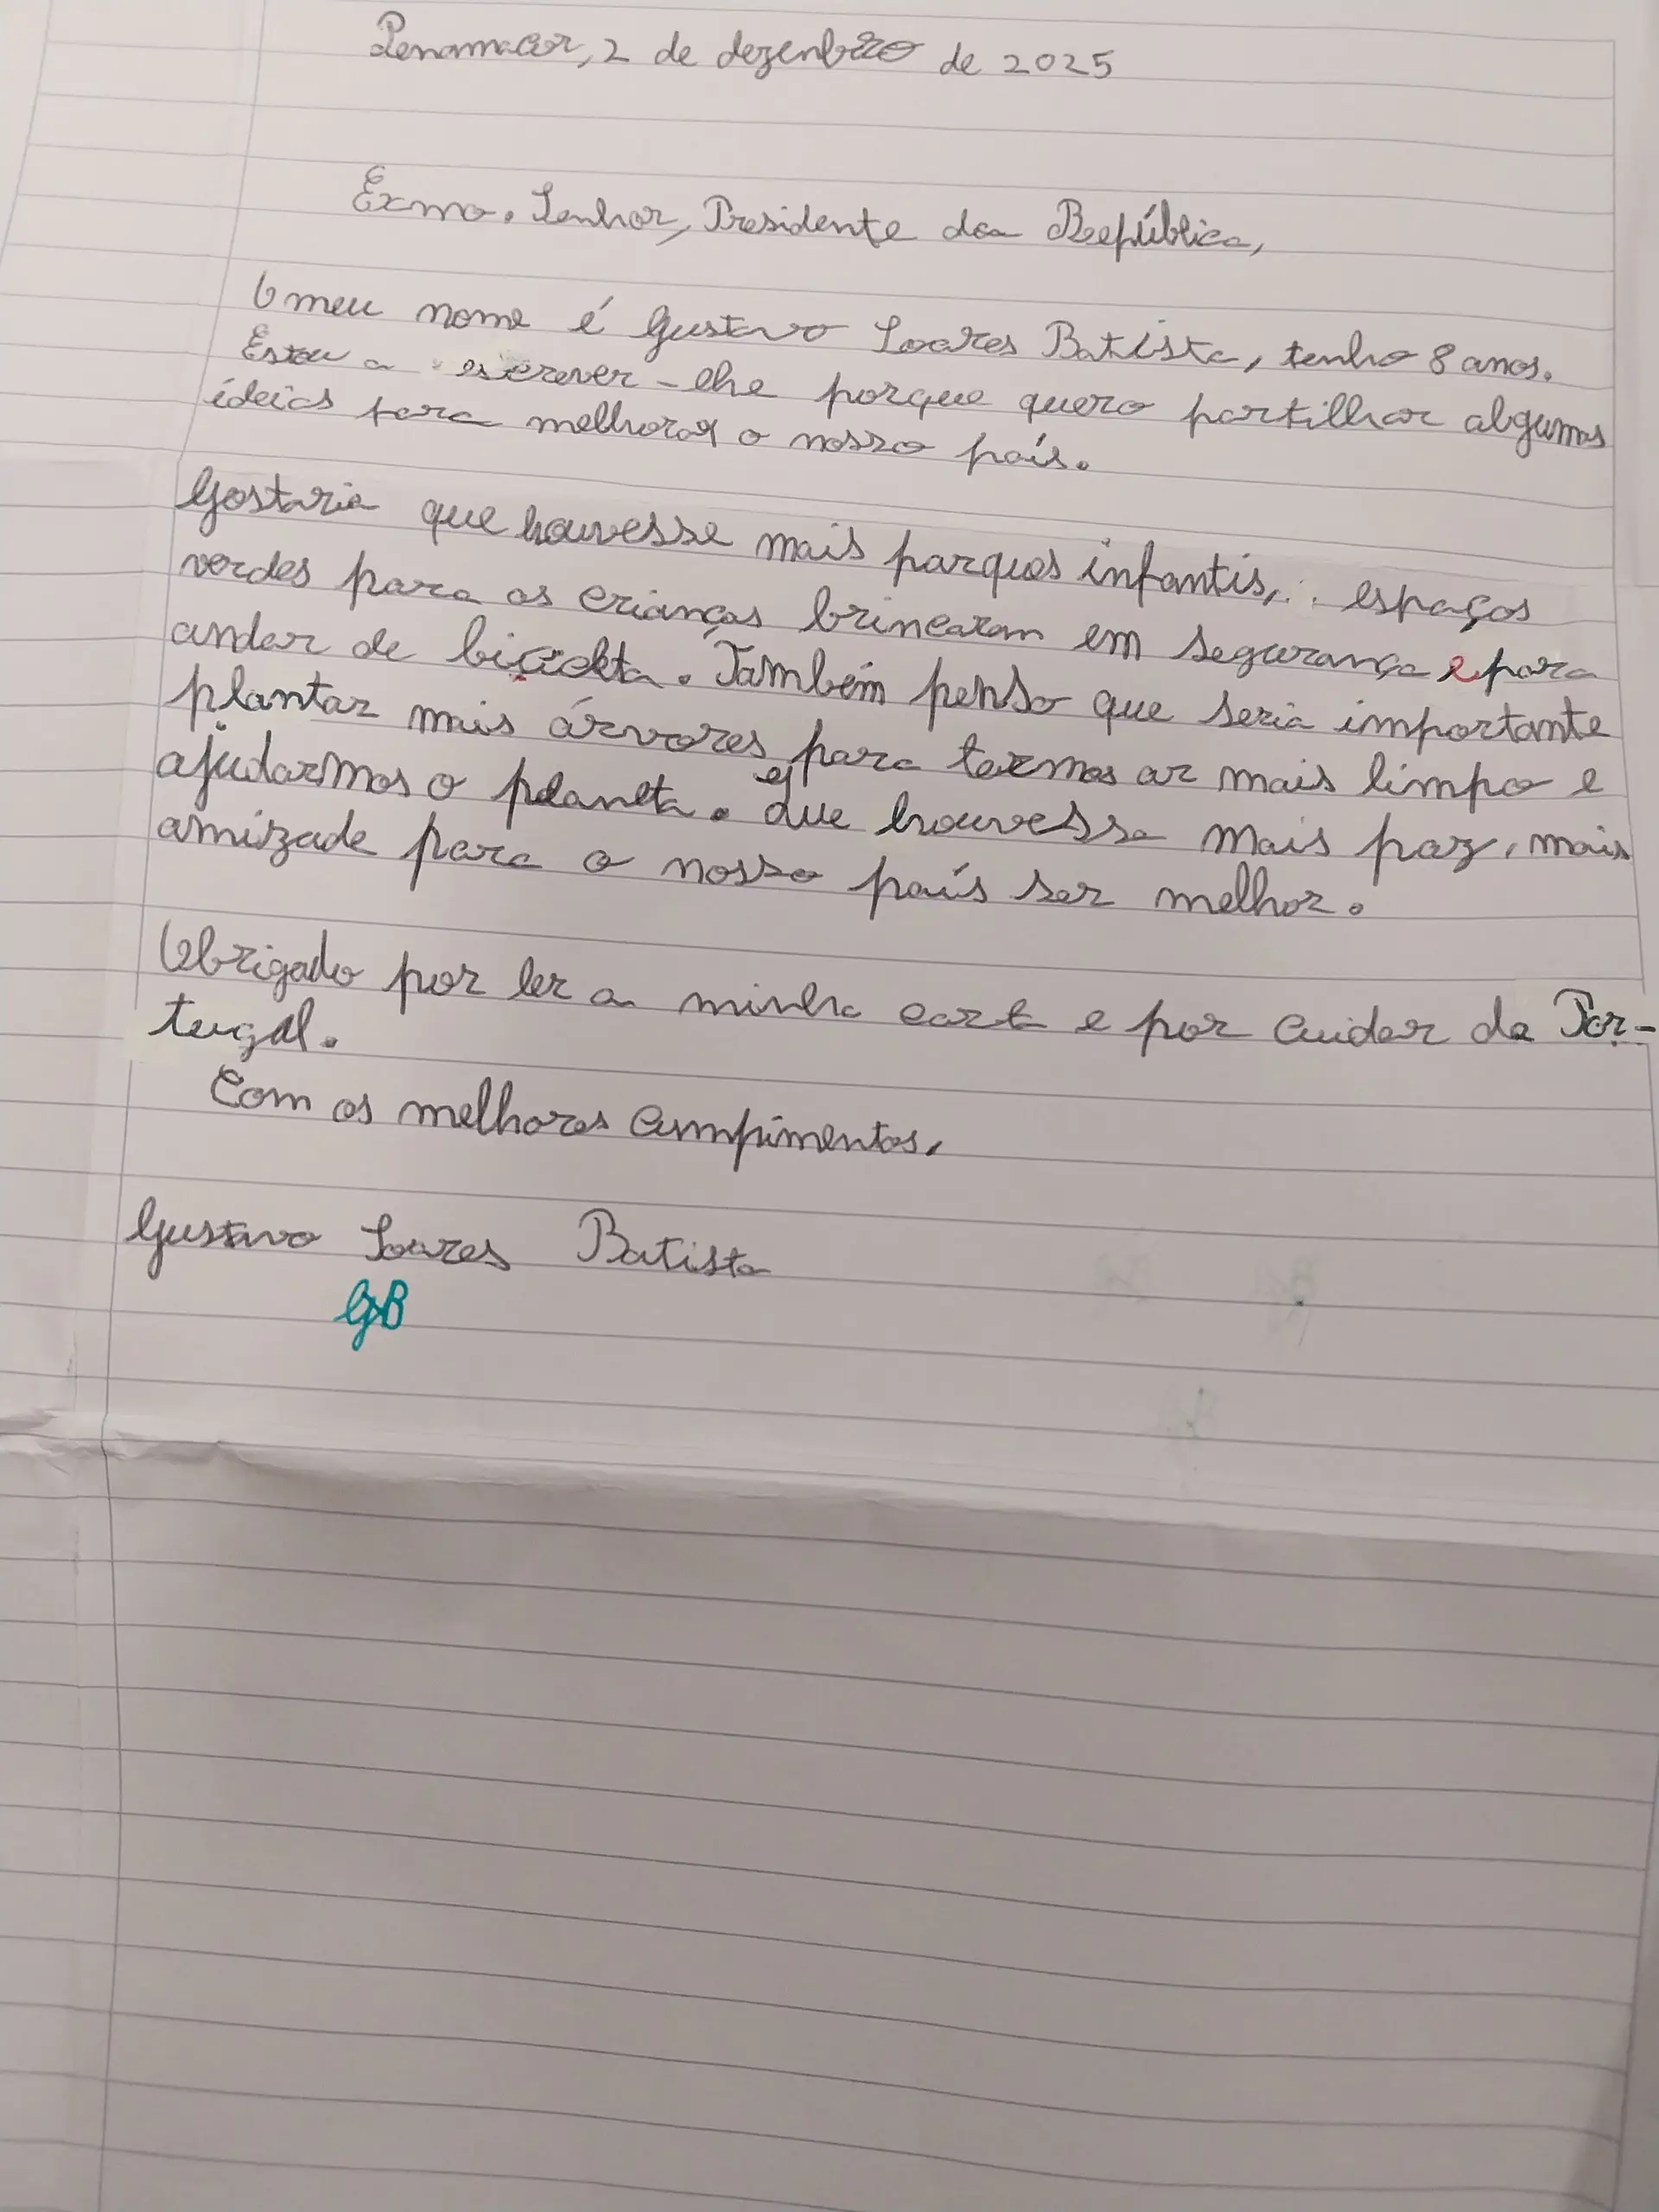 Penamacor, 2 de dezenbro de 2025
Exmo. Senhor, Presidente da República,
O meu nome é Gustavo Soares Batista, tenho 8 anos.
Estou a escrever-lhe porque quero partilhar algumas
ideias para melhorar o nosso país.
Gostaria que houvesse mais parques infantis, espaços
verdes para as crianças brincaram em segurança e para
andar de bicicleta. Também penso que seria importante
plantar mais árvores, para termos ar mais limpo e
ajudarmos o planeta. e que houvesse mais paz, mais
amizade para o nosso país ser melhor.
Obrigado por ler a minha carta e por cuidar de Por-
tugal.
Com os melhores cumpimentos,
Gustavo Soares Batista
GB